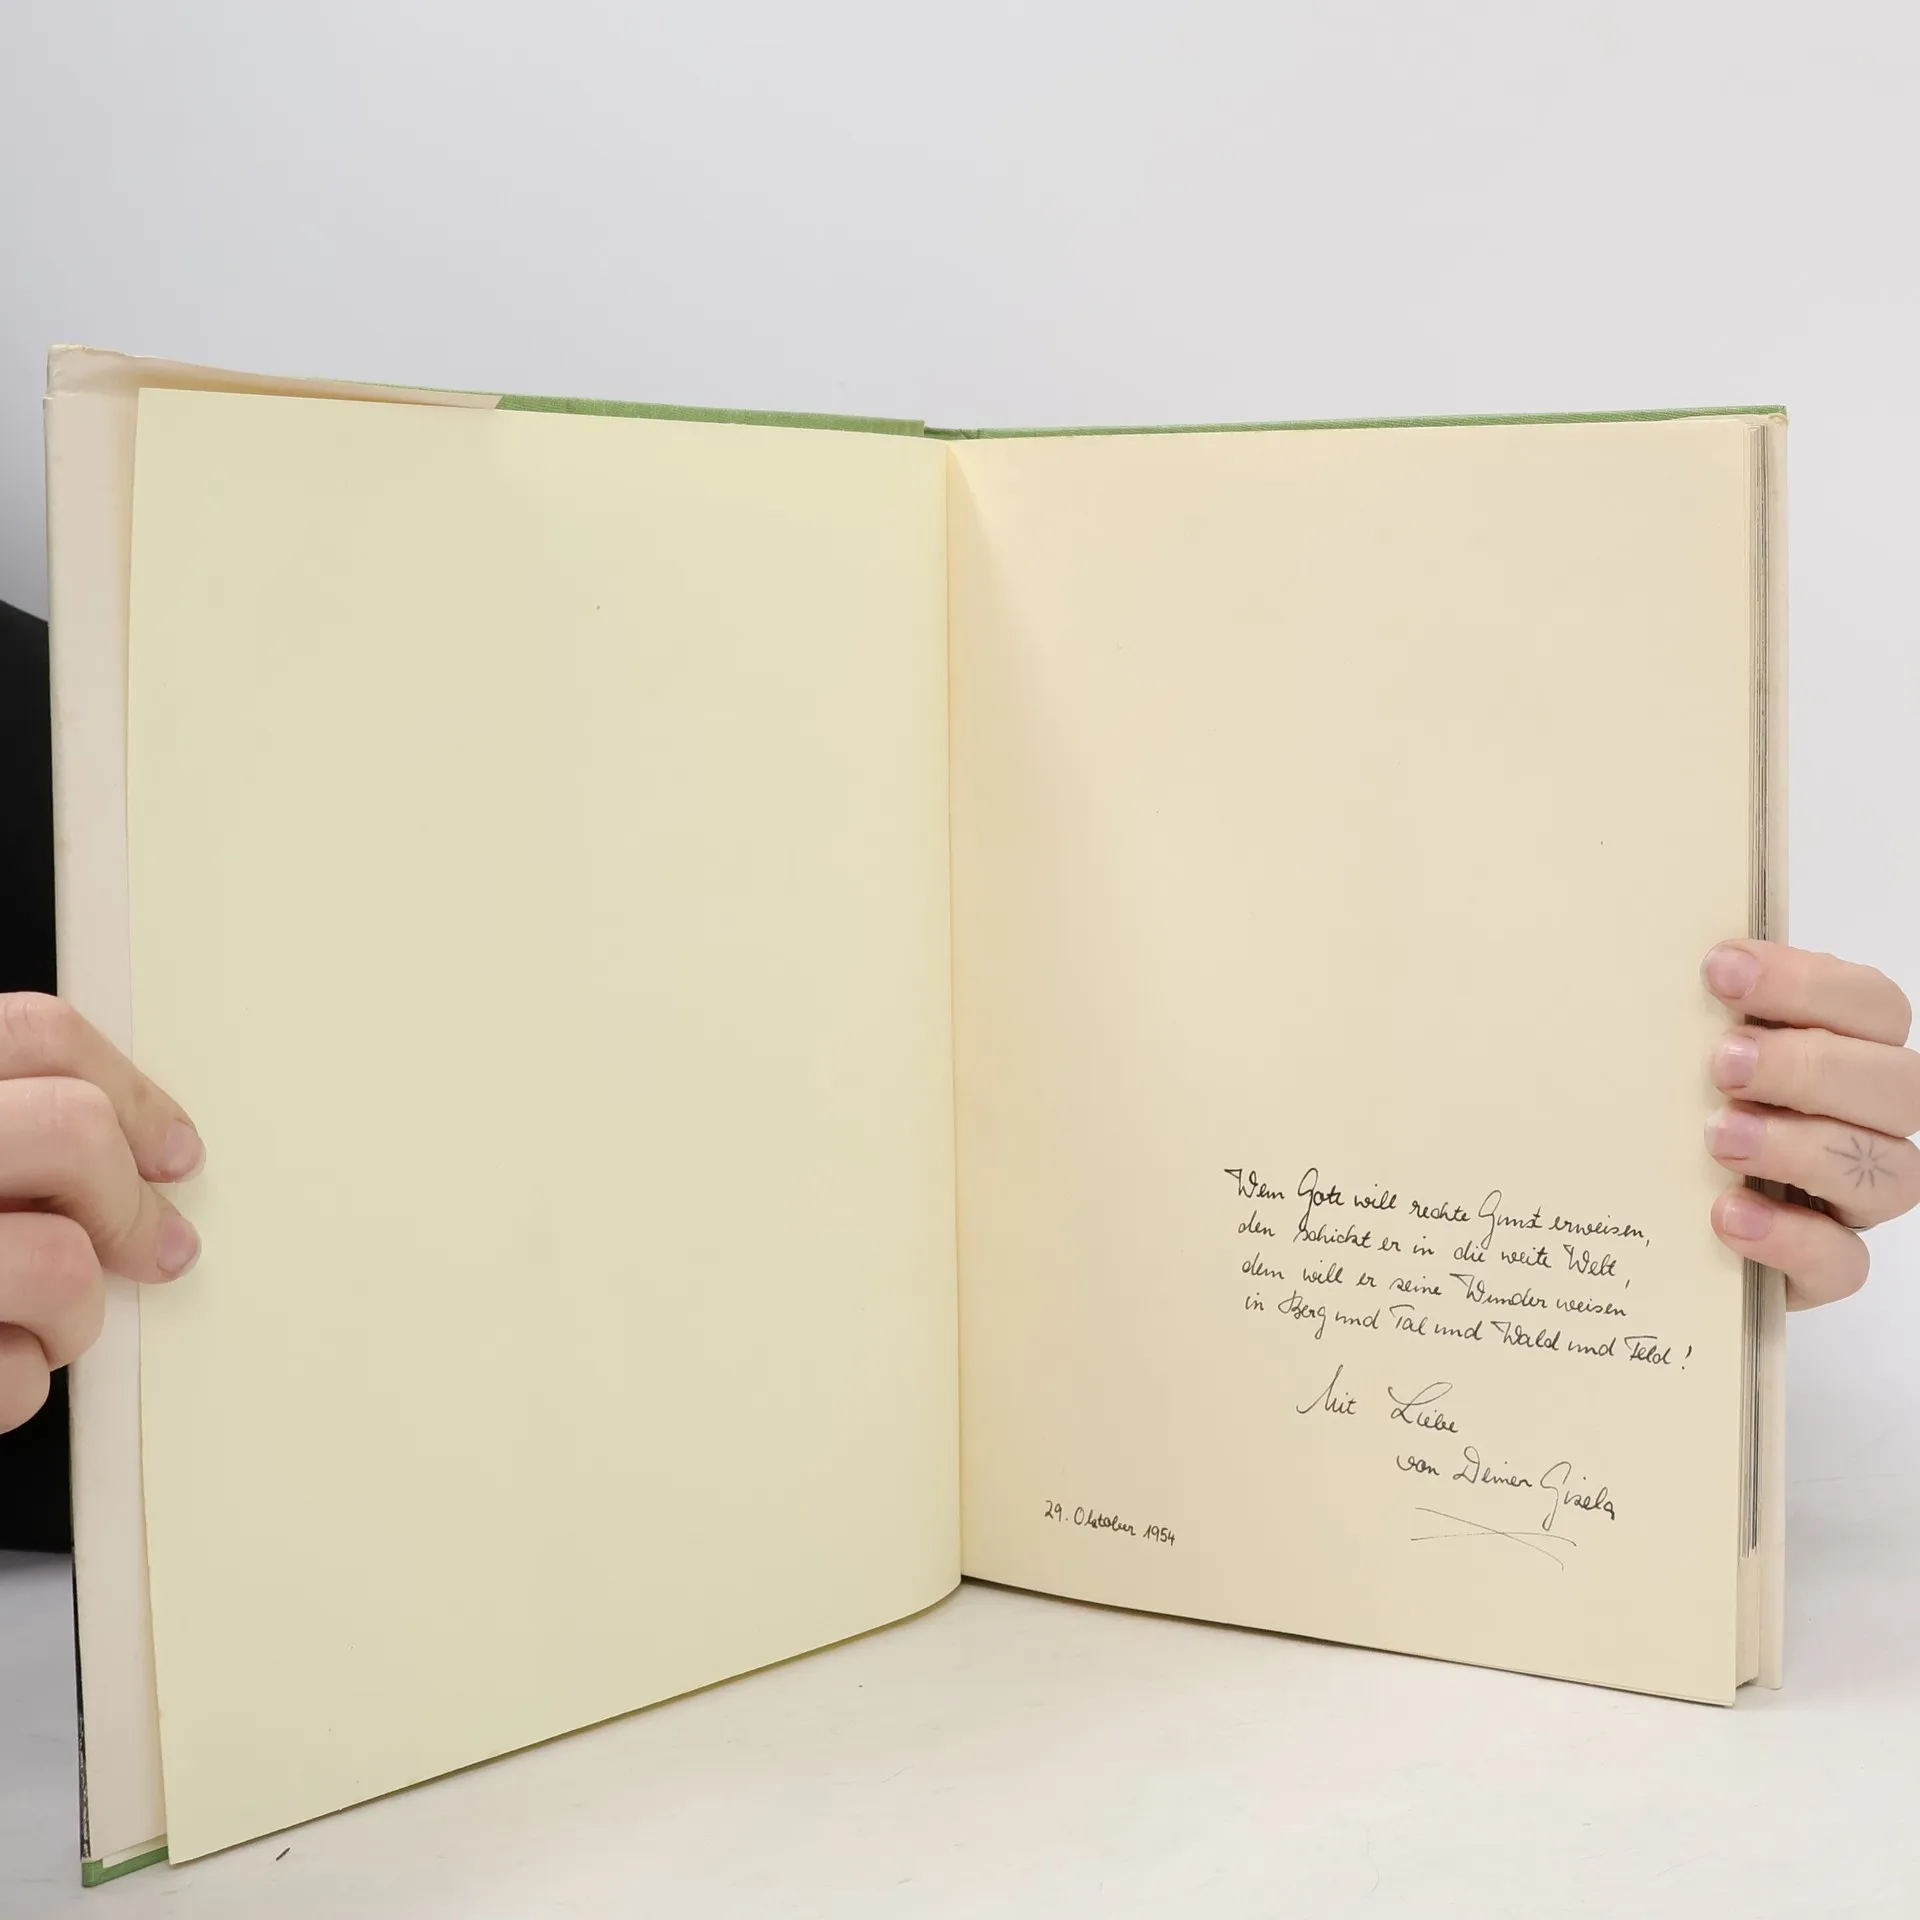 Wem Gott will rechte Gunst erweisen,
den schickt er in die weite Welt,
dem will er seine Wunder weisen
in Berg und Tal und Wald und Feld!
Mit Liebe
von Deiner Gisela
29. Oktober 1954